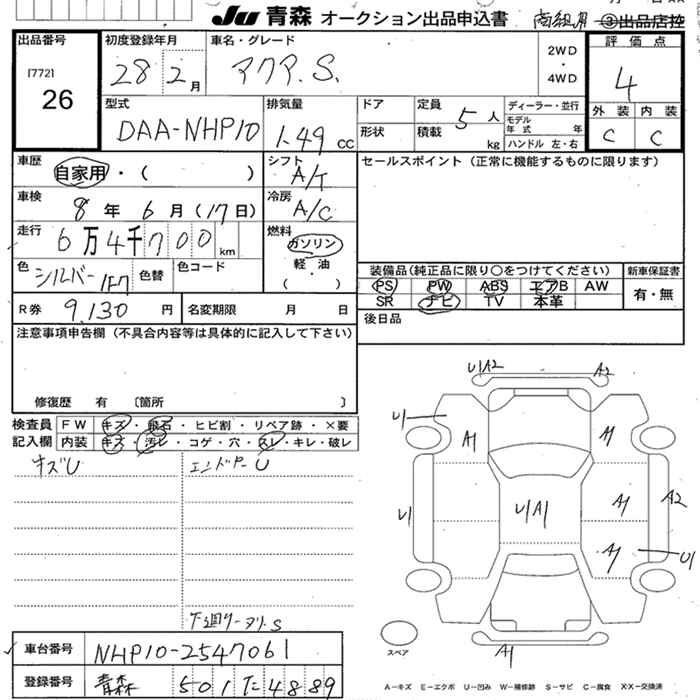 JU 青森 オークション出品申込書 商組用 ③出品店控
出品番号
[772]
26
初度登録年月
28 2月
車名・グレード
アクア.S.
2WD
・
4WD
評価点
4
外装 内装
C C
型式
DAA-NHP10
排気量
1.49 CC
ドア
形状
定員 5 人
積載 kg
ディーラー・並行
モデル年式 年
ハンドル 左・右
車歴
自家用・( )
シフト
A/T
セールスポイント(正常に機能するものに限ります)
車検
8年 6月(17日)
冷房
A/C
走行
6万4千700 km
燃料
ガソリン
軽・油
( )
色
シルバー 1F7
色替
色コード
装備品(純正品に限り○をつけてください)
PS PW ABS エアB AW
SR ナビ TV 本革
新車保証書
有・無
R券 9,130 円
名変期限 月 日
後日品
注意事項申告欄(不具合内容等は具体的に記入して下さい)
修復歴 有 〔箇所 〕
検査員
記入欄
FW キズ・飛石・ヒビ割・リペア跡・×要
内装 キズ・汚レ・コゲ・穴・スレ・キレ・破レ
キズU
エンドドアーU
下廻リサビS
U1A2
A2
U1
A1
A1
U1
U1A1
A1
A2
A1
U1
A1
スペア
A-キズ E-エクボ U-凹み W-補修跡 S-サビ C-腐食 X・X-交換済
車台番号
NHP10-2547061
登録番号
青森 501 た 4889